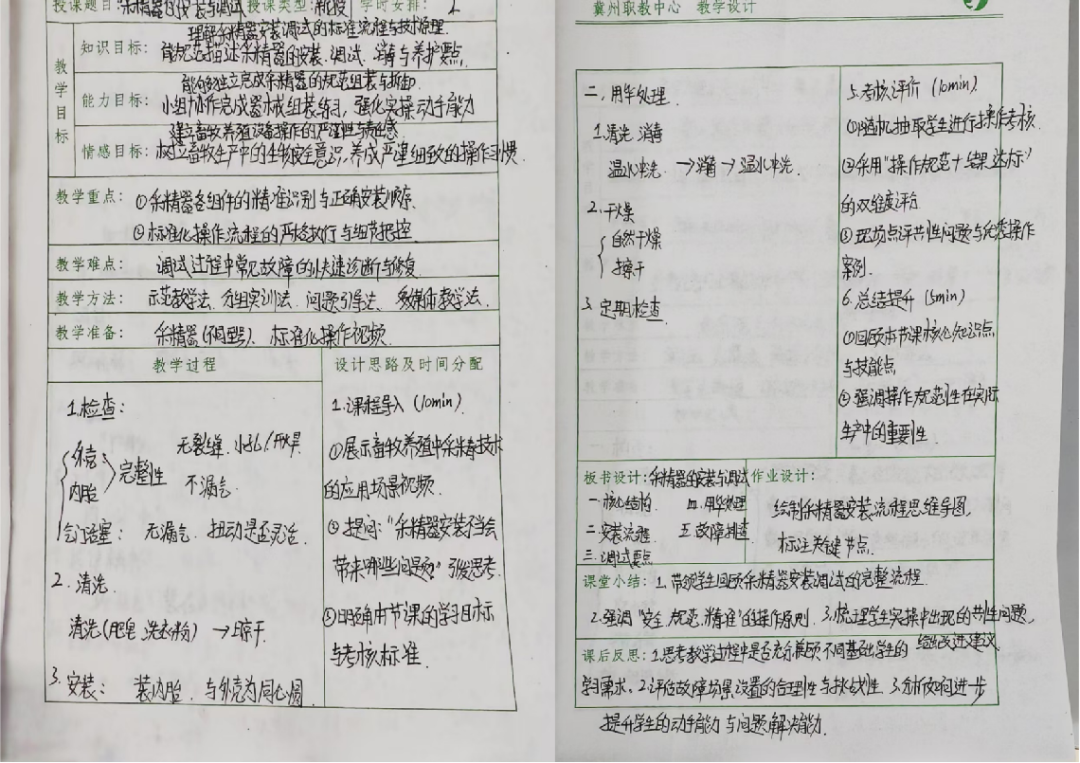 授课题目:采精器的安装与调试 授课类型:新授 学时安排: 2
教学目标
知识目标: 理解采精器安装调试的标准流程与技术原理.
能规范描述采精器的安装、调试、消毒与养护要点.
能力目标: 能够独立完成采精器的规范组装与拆卸.
小组协作完成器械组装练习,强化实操动手能力
情感目标: 建立畜牧养殖设备操作的严谨性与责任感
树立畜牧生产中的生物安全意识,养成严谨细致的操作习惯.
教学重点: ①采精器各组件的精准识别与正确安装顺序.
②标准化操作流程的严格执行与细节把控.
教学难点: 调试过程中常见故障的快速诊断与修复.
教学方法: 示范教学法、分组实训法、问题引导法、多媒体教学法.
教学准备: 采精器(不同型号)、标准化操作视频.
教学过程
1.检查:
外壳 无裂缝、小孔/开焊.
完整性
内胎 不漏气.
气门活塞: 无漏气、扭动是否灵活.
2. 清洗.
清洗(肥皂、洗衣粉)→晾干.
3.安装: 装内胎、与外壳为同心圆.
设计思路及时间分配
1.课程导入(10min)
①展示畜牧养殖中采精技术
的应用场景视频.
②提问:"采精器安装不当会
带来哪些问题?"引发思考.
③明确本节课的学习目标
与考核标准.
冀州职教中心 教学设计
二、用毕处理.
1.清洗 消毒
温水冲洗. →消毒→温水冲洗.
2.干燥
自然干燥
擦干
3.定期检查.
5.考核评价(10min)
①随机抽取学生进行操作考核.
②采用"操作规范+结果达标"
的双维度评估
③现场点评共性问题与优秀操作
案例.
6.总结提升(5min)
①回顾本节课核心知识点
与技能点
②强调操作规范性在实际
生产中的重要性.
板书设计:采精器的安装与调试
一、核心结构 四.用毕处理
二、安装流程 五.故障排查
三、调试要点
作业设计:
绘制采精器安装流程思维导图,
标注关键节点.
课堂小结: 1.带领学生回顾采精器安装调试的完整流程
2.强调"安全、规范、精准"的操作原则. 3.梳理学生实操中出现的共性问题,
给出改进建议.
课后反思: 1.思考教学过程中是否充分兼顾不同基础学生的
学习需求. 2.评估故障场景设置的合理性与挑战性. 3.分析如何进一步
提升学生的动手能力与问题解决能力.